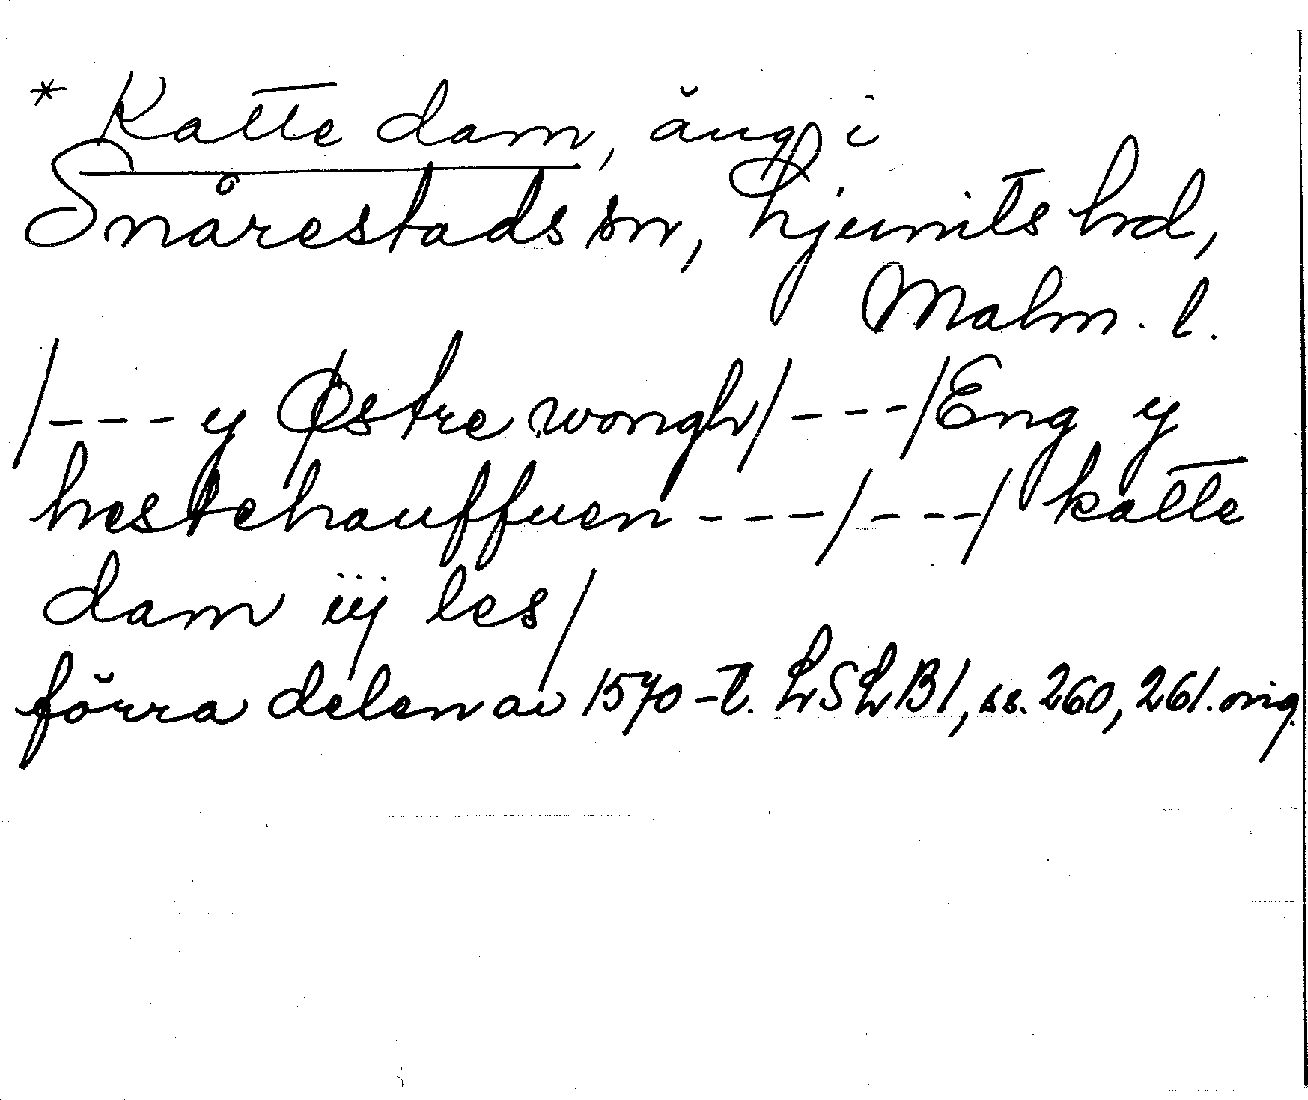 * Katte dam, äng i
Snårestads sn, Ljunits hd,
Malm. l.
/---y Østre wongh/---/Eng y
hestehauffuen ---/---/ katte
dam iij les/
förra delen av 1570-t. LSLB1, ss. 260, 261. orig.